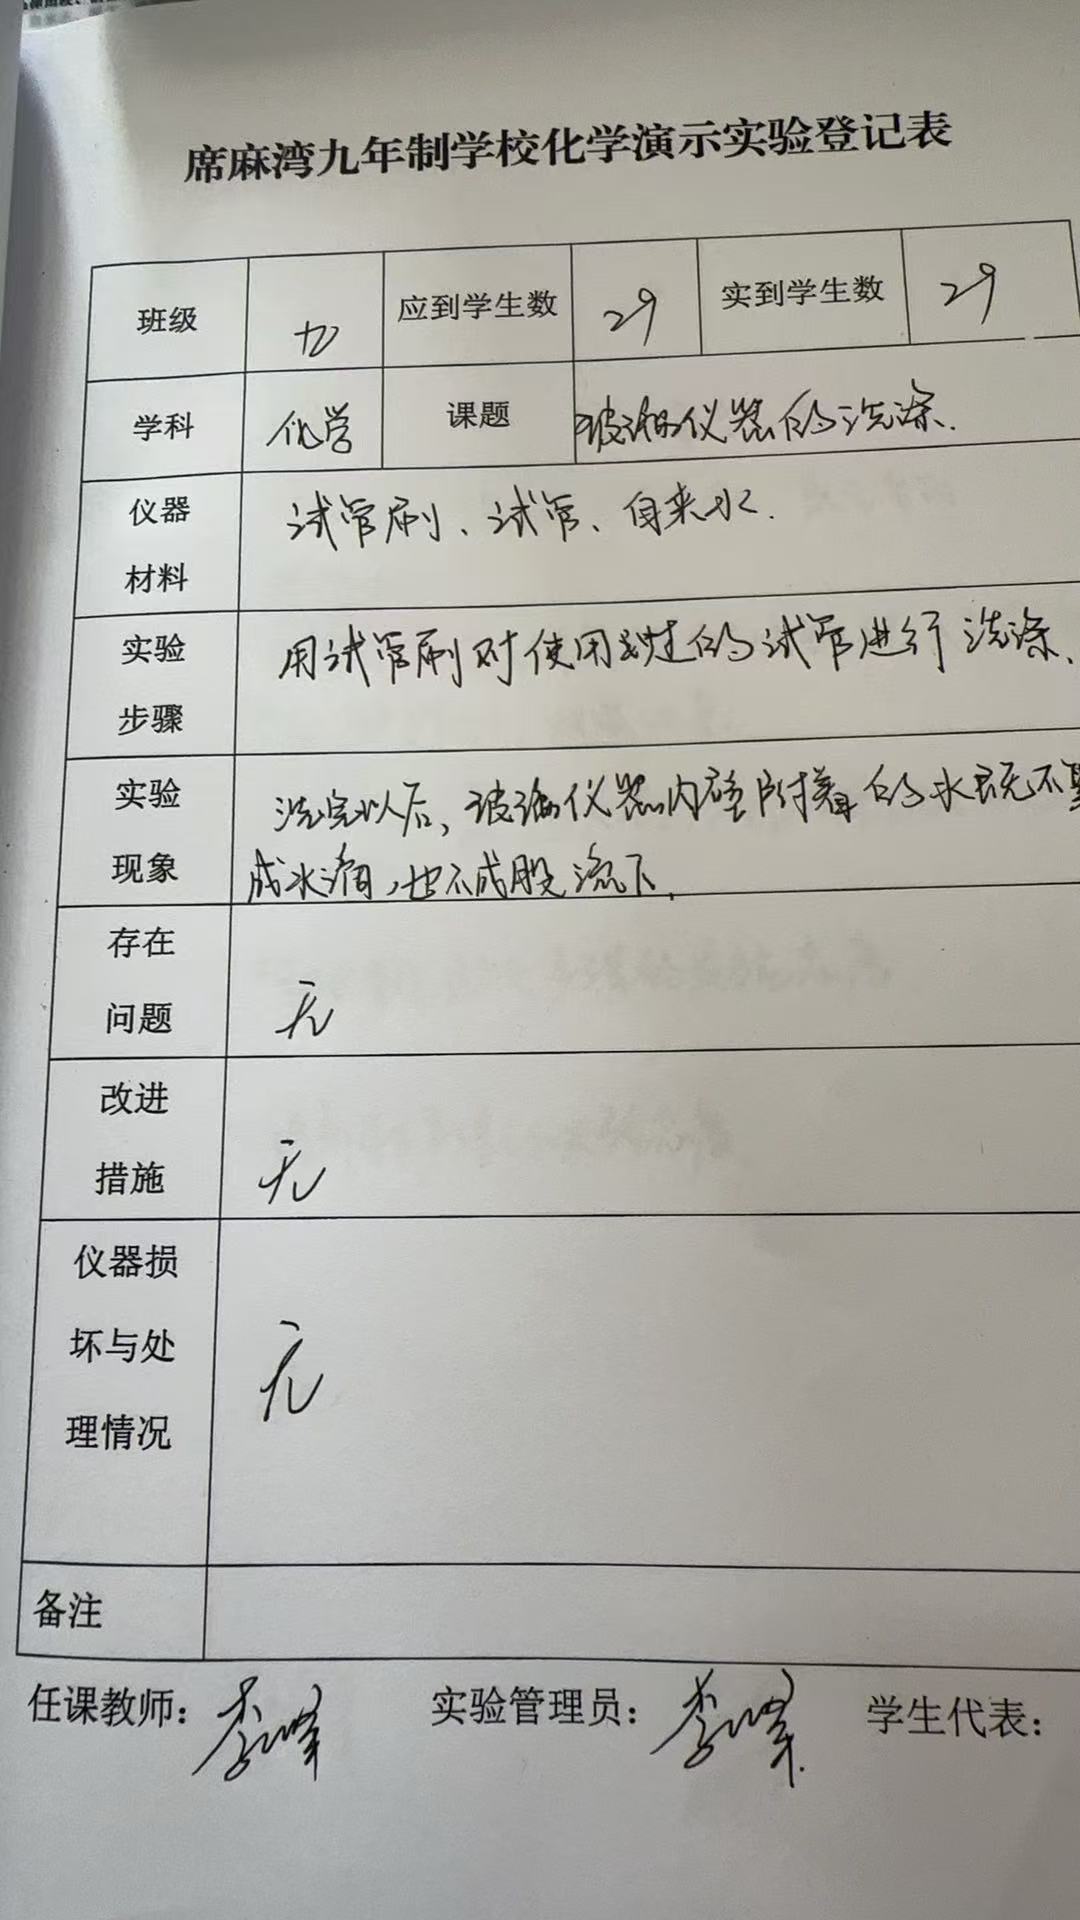 席麻湾九年制学校化学演示实验登记表
班级 九 应到学生数 29 实到学生数 29
学科 化学 课题 玻璃仪器的洗涤.
仪器 试管刷、试管、自来水.
材料
实验 用试管刷对使用过的试管进行洗涤、
步骤
实验 洗完以后,玻璃仪器内壁附着的水既不聚
现象 成水滴,也不成股流下.
存在
问题 无
改进
措施 无
仪器损
坏与处 无
理情况
备注
任课教师: 李峰 实验管理员: 李峰 学生代表: